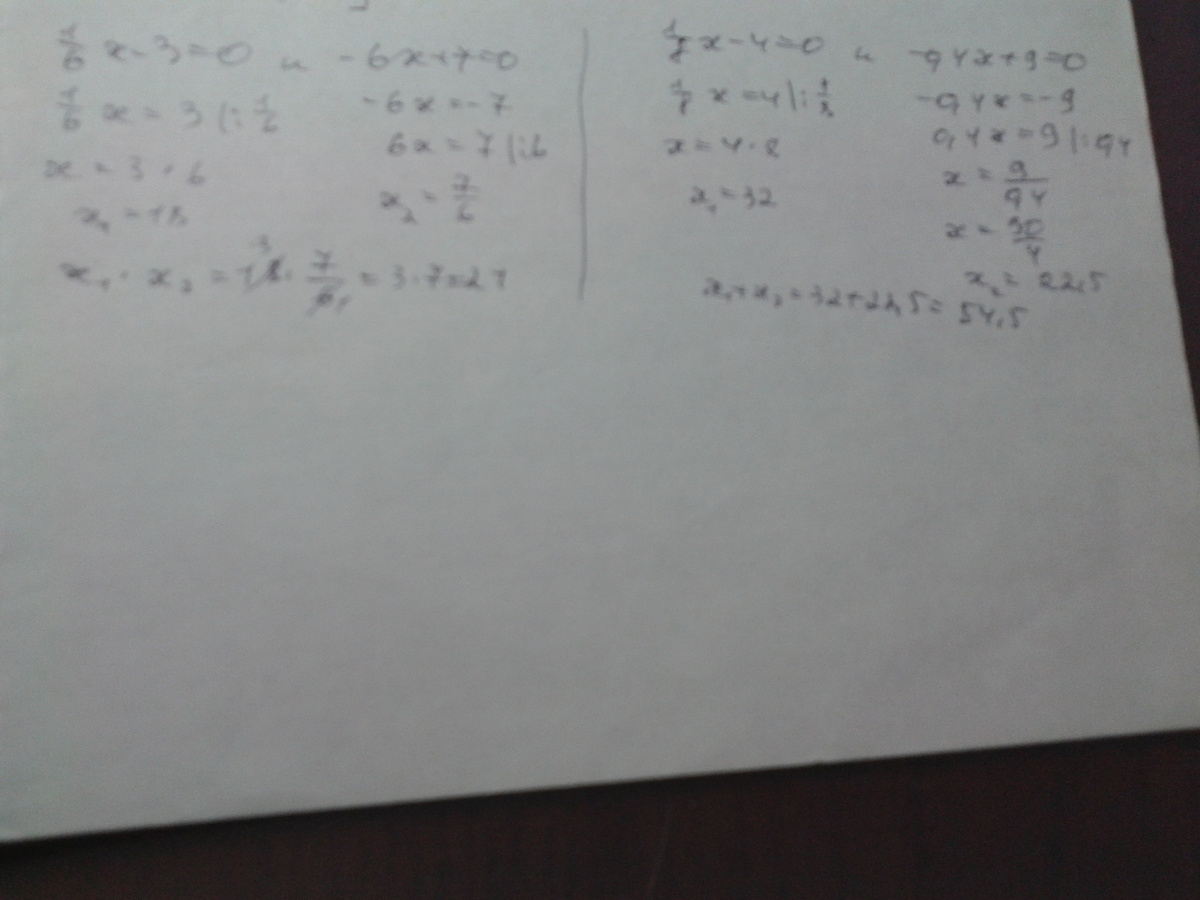 1/6 x - 3 = 0 и -6x + 7 = 0
1/6 x = 3 |: 1/6
x = 3 · 6
x₁ = 18
-6x = -7
6x = 7 |:6
x₂ = 7/6
x₁ · x₂ = 18 · 7/6 = 3 · 7 = 21
1/8 x - 4 = 0 и -0,4x + 9 = 0
1/8 x = 4 |: 1/8
x = 4 · 8
x₁ = 32
-0,4x = -9
0,4x = 9 |: 0,4
x = 9/0,4
x = 90/4
x₂ = 22,5
x₁ + x₂ = 32 + 22,5 = 54,5